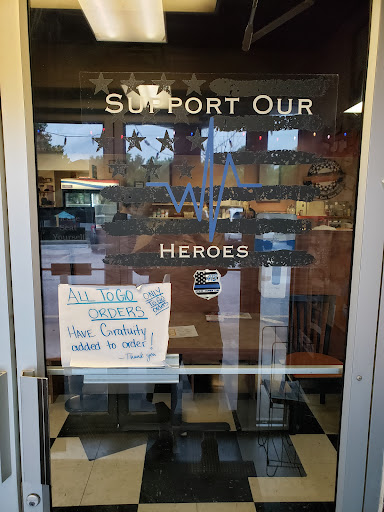 SUPPORT OUR
HEROES
ALL TO GO
ORDERS
HAVE Gratuity
added to order!
- Thank you
ONLY